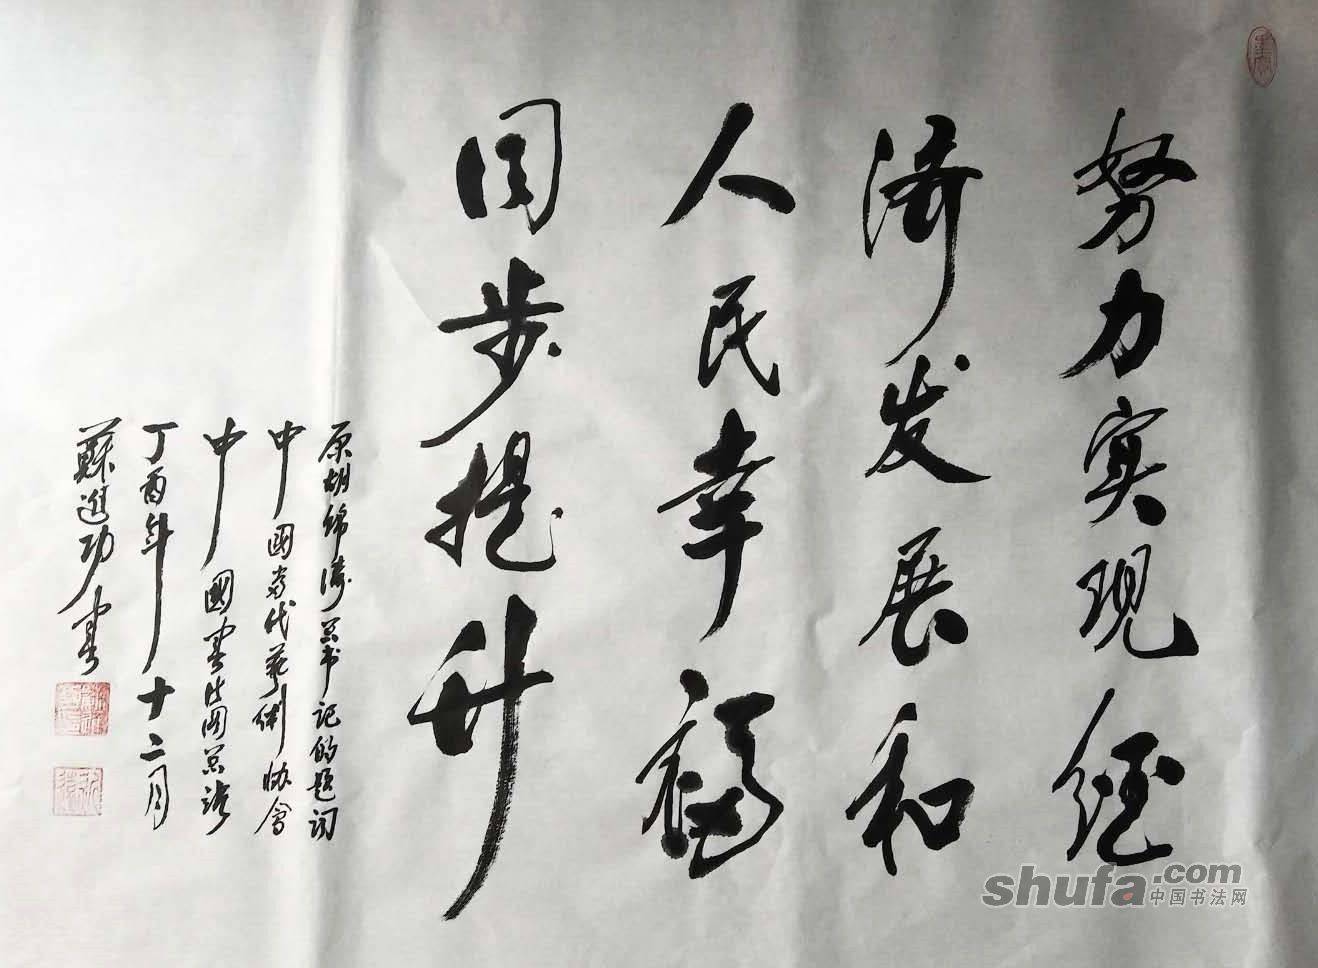 努力实现经
济发展和
人民幸福
同步提升
原胡锦濤总书记的题词
中國当代艺術协會
中國書法网总站
丁酉年十二月
蘇進功書
shufa.com
中国书法网